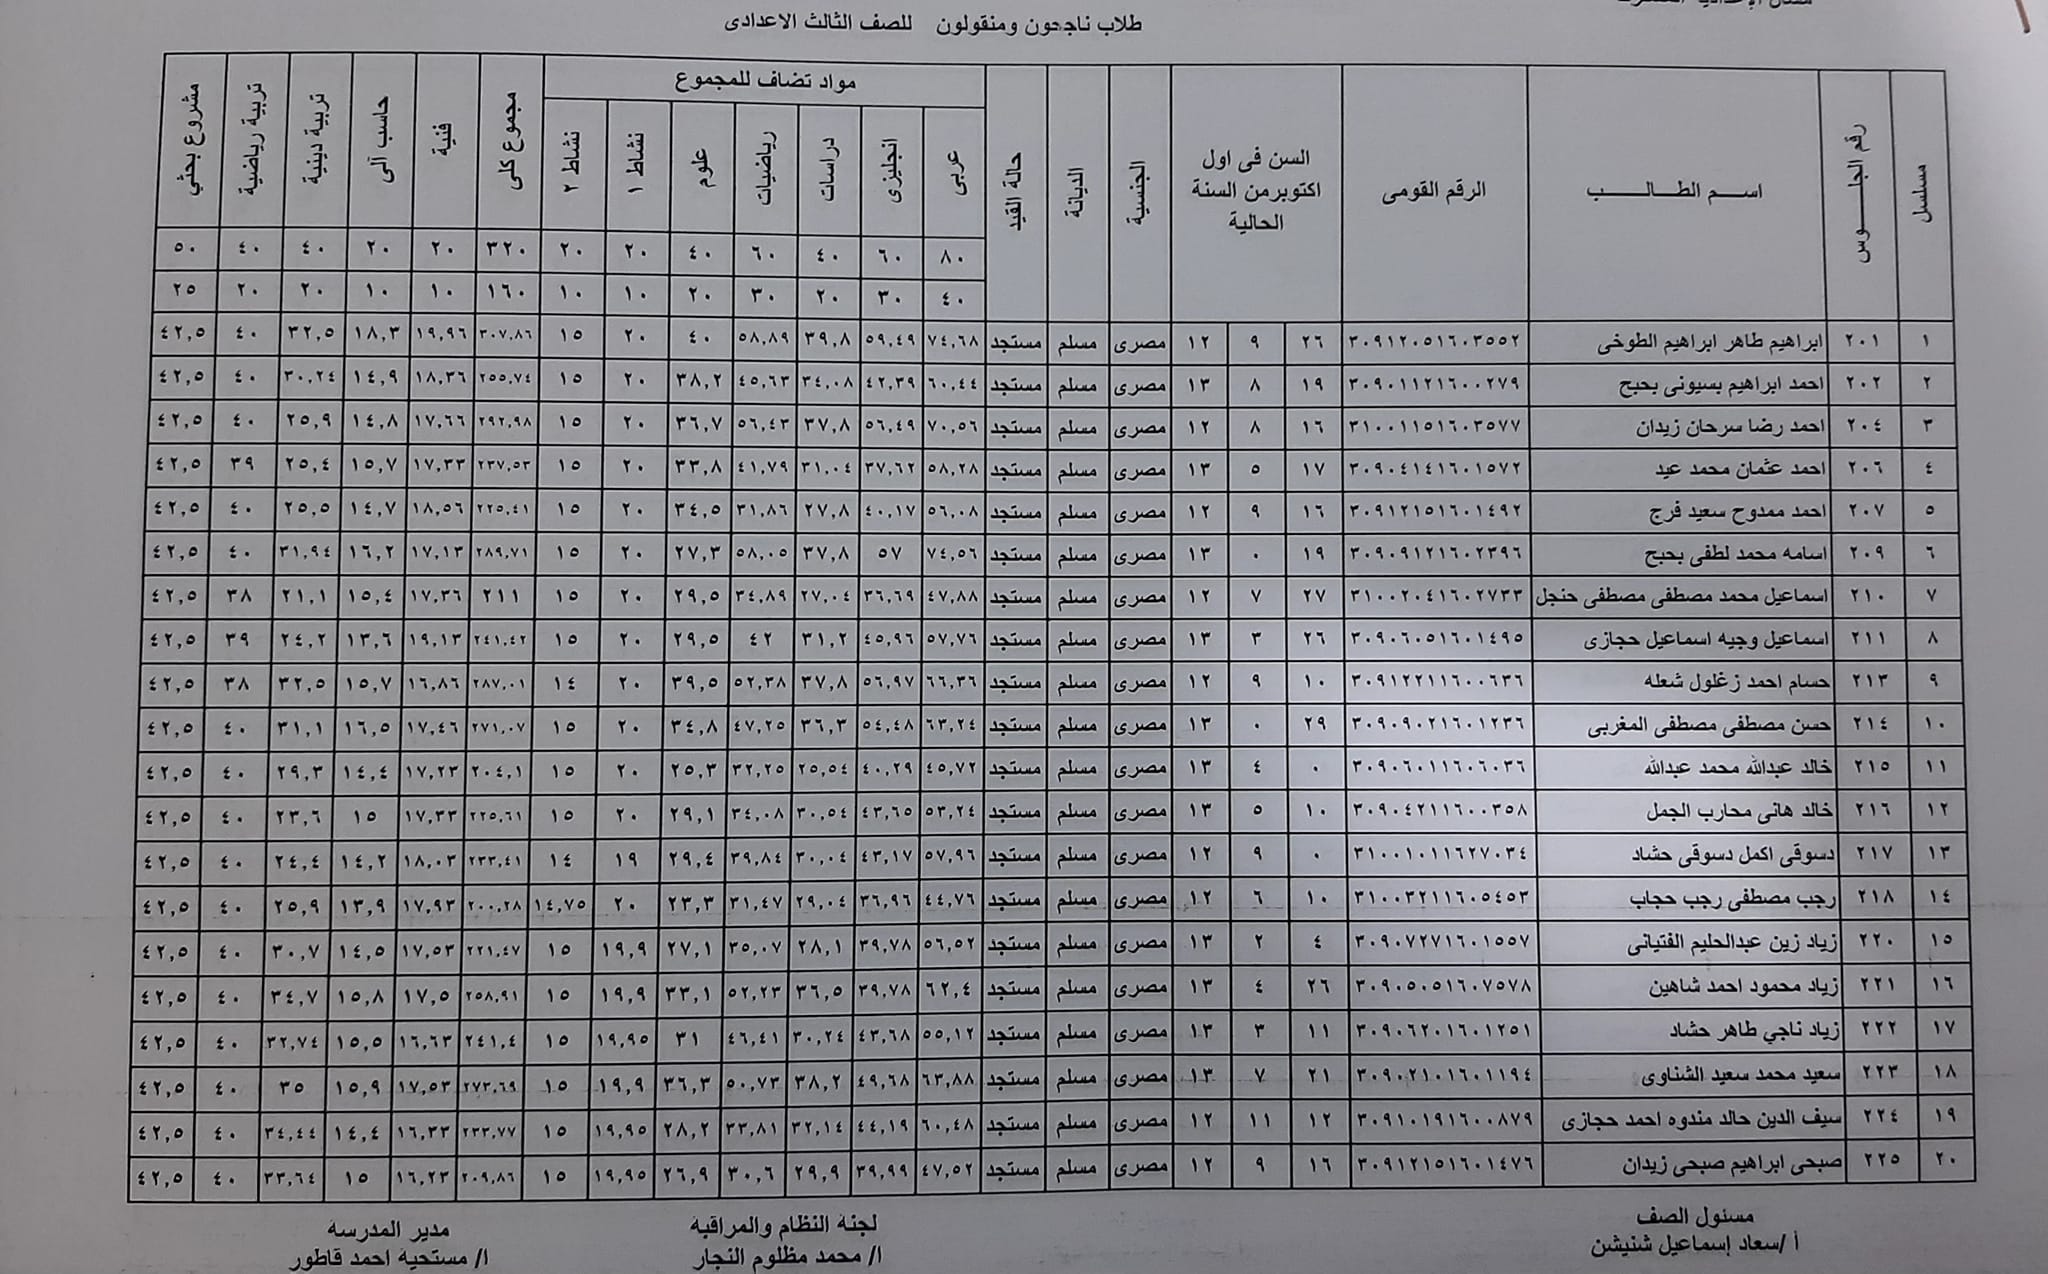 طلاب ناجحون ومنقولون للصف الثالث الاعدادى
مسلسل رقم الجلوس اسم الطالب الرقم القومى السن فى اول اكتوبرمن السنة الحالية الجنسية الديانة حالة القيد مواد تضاف للمجموع مجموع كلى فنية حاسب آلى تربية دينية تربية رياضية مشروع بحثي
عربى انجليزى دراسات رياضيات علوم نشاط ١ نشاط ٢
٨٠ ٦٠ ٤٠ ٦٠ ٤٠ ٢٠ ٢٠ ٣٢٠ ٢٠ ٢٠ ٤٠ ٤٠ ٥٠
٤٠ ٣٠ ٢٠ ٣٠ ٢٠ ١٠ ١٠ ١٦٠ ١٠ ١٠ ٢٠ ٢٠ ٢٥
١ ٢٠١ ابراهيم طاهر ابراهيم الطوخى ٣٠٩١٢٠٥١٦٠٣٥٥٢ ٢٦ ٩ ١٢ مصرى مسلم مستجد ٧٤,٦٨ ٥٩,٤٩ ٣٩,٨ ٥٨,٨٩ ٤٠ ٢٠ ١٥ ٣٠٧,٨٦ ١٩,٩٦ ١٨,٣ ٣٢,٥ ٤٠ ٤٢,٥
٢ ٢٠٢ احمد ابراهيم بسيونى بحبح ٣٠٩٠١١٢١٦٠٠٢٧٩ ١٩ ٨ ١٣ مصرى مسلم مستجد ٦٠,٤٤ ٤٢,٣٩ ٣٤,٠٨ ٤٥,٦٣ ٣٨,٢ ٢٠ ١٥ ٢٥٥,٧٤ ١٨,٣٦ ١٤,٩ ٣٠,٢٤ ٤٠ ٤٢,٥
٣ ٢٠٤ احمد رضا سرحان زيدان ٣١٠٠١١٥١٦٠٣٥٧٧ ١٦ ٨ ١٢ مصرى مسلم مستجد ٧٠,٥٦ ٥٦,٤٩ ٣٧,٨ ٥٦,٤٣ ٣٦,٧ ٢٠ ١٥ ٢٩٢,٩٨ ١٧,٦٦ ١٤,٨ ٢٥,٩ ٤٠ ٤٢,٥
٤ ٢٠٦ احمد عثمان محمد عيد ٣٠٩٠٤١٤١٦٠١٥٧٢ ١٧ ٥ ١٣ مصرى مسلم مستجد ٥٨,٢٨ ٣٧,٦٢ ٣١,٠٤ ٤١,٧٩ ٣٣,٨ ٢٠ ١٥ ٢٣٧,٥٣ ١٧,٣٣ ١٥,٧ ٢٥,٤ ٣٩ ٤٢,٥
٥ ٢٠٧ احمد ممدوح سعيد فرج ٣٠٩١٢١٥١٦٠١٤٩٢ ١٦ ٩ ١٢ مصرى مسلم مستجد ٥٦,٠٨ ٤٠,١٧ ٢٧,٨ ٣١,٨٦ ٣٤,٥ ٢٠ ١٥ ٢٢٥,٤١ ١٨,٥٦ ١٤,٧ ٢٥,٥ ٤٠ ٤٢,٥
٦ ٢٠٩ اسامه محمد لطفى بحبح ٣٠٩٠٩١٢١٦٠٢٣٩٦ ١٩ ٠ ١٣ مصرى مسلم مستجد ٧٤,٥٦ ٥٧ ٣٧,٨ ٥٨,٠٥ ٢٧,٣ ٢٠ ١٥ ٢٨٩,٧١ ١٧,١٣ ١٦,٢ ٣١,٩٤ ٤٠ ٤٢,٥
٧ ٢١٠ اسماعيل محمد مصطفى مصطفى حنجل ٣١٠٠٢٠٤١٦٠٢٧٣٣ ٢٧ ٧ ١٢ مصرى مسلم مستجد ٤٧,٨٨ ٣٦,٦٩ ٢٧,٠٤ ٣٤,٨٩ ٢٩,٥ ٢٠ ١٥ ٢١١ ١٧,٣٦ ١٥,٤ ٢١,١ ٣٨ ٤٢,٥
٨ ٢١١ اسماعيل وجيه اسماعيل حجازى ٣٠٩٠٦٠٥١٦٠١٤٩٥ ٢٦ ٣ ١٣ مصرى مسلم مستجد ٥٧,٧٦ ٤٥,٩٦ ٣١,٢ ٤٢ ٢٩,٥ ٢٠ ١٥ ٢٤١,٤٢ ١٩,١٣ ١٣,٦ ٢٤,٢ ٣٩ ٤٢,٥
٩ ٢١٣ حسام احمد زغلول شعله ٣٠٩١٢٢١١٦٠٠٦٣٦ ١٠ ٩ ١٢ مصرى مسلم مستجد ٦٦,٣٦ ٥٦,٩٧ ٣٧,٨ ٥٢,٣٨ ٣٩,٥ ٢٠ ١٤ ٢٨٧,٠١ ١٦,٨٦ ١٥,٧ ٣٢,٥ ٣٨ ٤٢,٥
١٠ ٢١٤ حسن مصطفى مصطفى المغربى ٣٠٩٠٩٠٢١٦٠١٢٣٦ ٢٩ ٠ ١٣ مصرى مسلم مستجد ٦٣,٢٤ ٥٤,٤٨ ٣٦,٣ ٤٧,٢٥ ٣٤,٨ ٢٠ ١٥ ٢٧١,٠٧ ١٧,٤٦ ١٦,٥ ٣١,١ ٤٠ ٤٢,٥
١١ ٢١٥ خالد عبدالله محمد عبدالله ٣٠٩٠٦٠١١٦٠٦٠٣٦ ٠ ٤ ١٣ مصرى مسلم مستجد ٤٥,٧٢ ٤٠,٢٩ ٢٥,٥٤ ٣٢,٢٥ ٢٥,٣ ٢٠ ١٥ ٢٠٤,١ ١٧,٢٣ ١٤,٤ ٢٩,٣ ٤٠ ٤٢,٥
١٢ ٢١٦ خالد هانى محارب الجمل ٣٠٩٠٤٢١١٦٠٠٣٥٨ ١٠ ٥ ١٣ مصرى مسلم مستجد ٥٣,٢٤ ٤٣,٦٥ ٣٠,٥٤ ٣٤,٠٨ ٢٩,١ ٢٠ ١٥ ٢٢٥,٦١ ١٧,٣٣ ١٥ ٢٣,٦ ٤٠ ٤٢,٥
١٣ ٢١٧ دسوقى اكمل دسوقى حشاد ٣١٠٠١٠١١٦٢٧٠٣٤ ٠ ٩ ١٢ مصرى مسلم مستجد ٥٧,٩٦ ٤٣,١٧ ٣٠,٠٤ ٣٩,٨٤ ٢٩,٤ ١٩ ١٤ ٢٣٣,٤١ ١٨,٠٣ ١٤,٢ ٢٤,٤ ٤٠ ٤٢,٥
١٤ ٢١٨ رجب مصطفى رجب حجاب ٣١٠٠٣٢١١٦٠٥٤٥٣ ١٠ ٦ ١٢ مصرى مسلم مستجد ٤٤,٧٦ ٣٦,٩٦ ٢٩,٠٤ ٣١,٤٧ ٢٣,٣ ٢٠ ١٤,٧٥ ٢٠٠,٢٨ ١٧,٩٣ ١٣,٩ ٢٥,٩ ٤٠ ٤٢,٥
١٥ ٢٢٠ زياد زين عبدالحليم الفتيانى ٣٠٩٠٧٢٧١٦٠١٥٥٧ ٤ ٢ ١٣ مصرى مسلم مستجد ٥٦,٥٢ ٣٩,٧٨ ٢٨,١ ٣٥,٠٧ ٢٧,١ ١٩,٩ ١٥ ٢٢١,٤٧ ١٧,٥٣ ١٤,٥ ٣٠,٧ ٤٠ ٤٢,٥
١٦ ٢٢١ زياد محمود احمد شاهين ٣٠٩٠٥٠٥١٦٠٧٥٧٨ ٢٦ ٤ ١٣ مصرى مسلم مستجد ٦٢,٤ ٣٩,٧٨ ٣٦,٥ ٥٢,٢٣ ٣٣,١ ١٩,٩ ١٥ ٢٥٨,٩١ ١٧,٥ ١٥,٨ ٣٤,٧ ٤٠ ٤٢,٥
١٧ ٢٢٢ زياد ناجي طاهر حشاد ٣٠٩٠٦٢٠١٦٠١٢٥١ ١١ ٣ ١٣ مصرى مسلم مستجد ٥٥,١٢ ٤٣,٦٨ ٣٠,٢٤ ٤٦,٤١ ٣١ ١٩,٩٥ ١٥ ٢٤١,٤ ١٦,٦٣ ١٥,٥ ٣٢,٧٤ ٤٠ ٤٢,٥
١٨ ٢٢٣ سعيد محمد سعيد الشناوى ٣٠٩٠٢١٠١٦٠١١٩٤ ٢١ ٧ ١٣ مصرى مسلم مستجد ٦٣,٨٨ ٤٩,٦٨ ٣٨,٢ ٥٠,٧٣ ٣٦,٣ ١٩,٩ ١٥ ٢٧٣,٦٩ ١٧,٥٣ ١٥,٩ ٣٥ ٤٠ ٤٢,٥
١٩ ٢٢٤ سيف الدين خالد مندوه احمد حجازى ٣٠٩١٠١٩١٦٠٠٨٧٩ ١٢ ١١ ١٢ مصرى مسلم مستجد ٦٠,٤٨ ٤٤,١٩ ٣٢,١٤ ٣٣,٨١ ٢٨,٢ ١٩,٩٥ ١٥ ٢٣٣,٧٧ ١٦,٣٣ ١٤,٤ ٣٤,٤٤ ٤٠ ٤٢,٥
٢٠ ٢٢٥ صبحى ابراهيم صبحى زيدان ٣٠٩١٢١٥١٦٠١٤٧٦ ١٦ ٩ ١٢ مصرى مسلم مستجد ٤٧,٥٢ ٣٩,٩٩ ٢٩,٩ ٣٠,٦ ٢٦,٩ ١٩,٩٥ ١٥ ٢٠٩,٨٦ ١٦,٢٣ ١٥ ٣٣,٦٤ ٤٠ ٤٢,٥
مسئول الصف لجنة النظام والمراقبة مدير المدرسه
أ /سعاد إسماعيل شنيشن ا/ محمد مظلوم النجار ا/ مستحية احمد قاطور